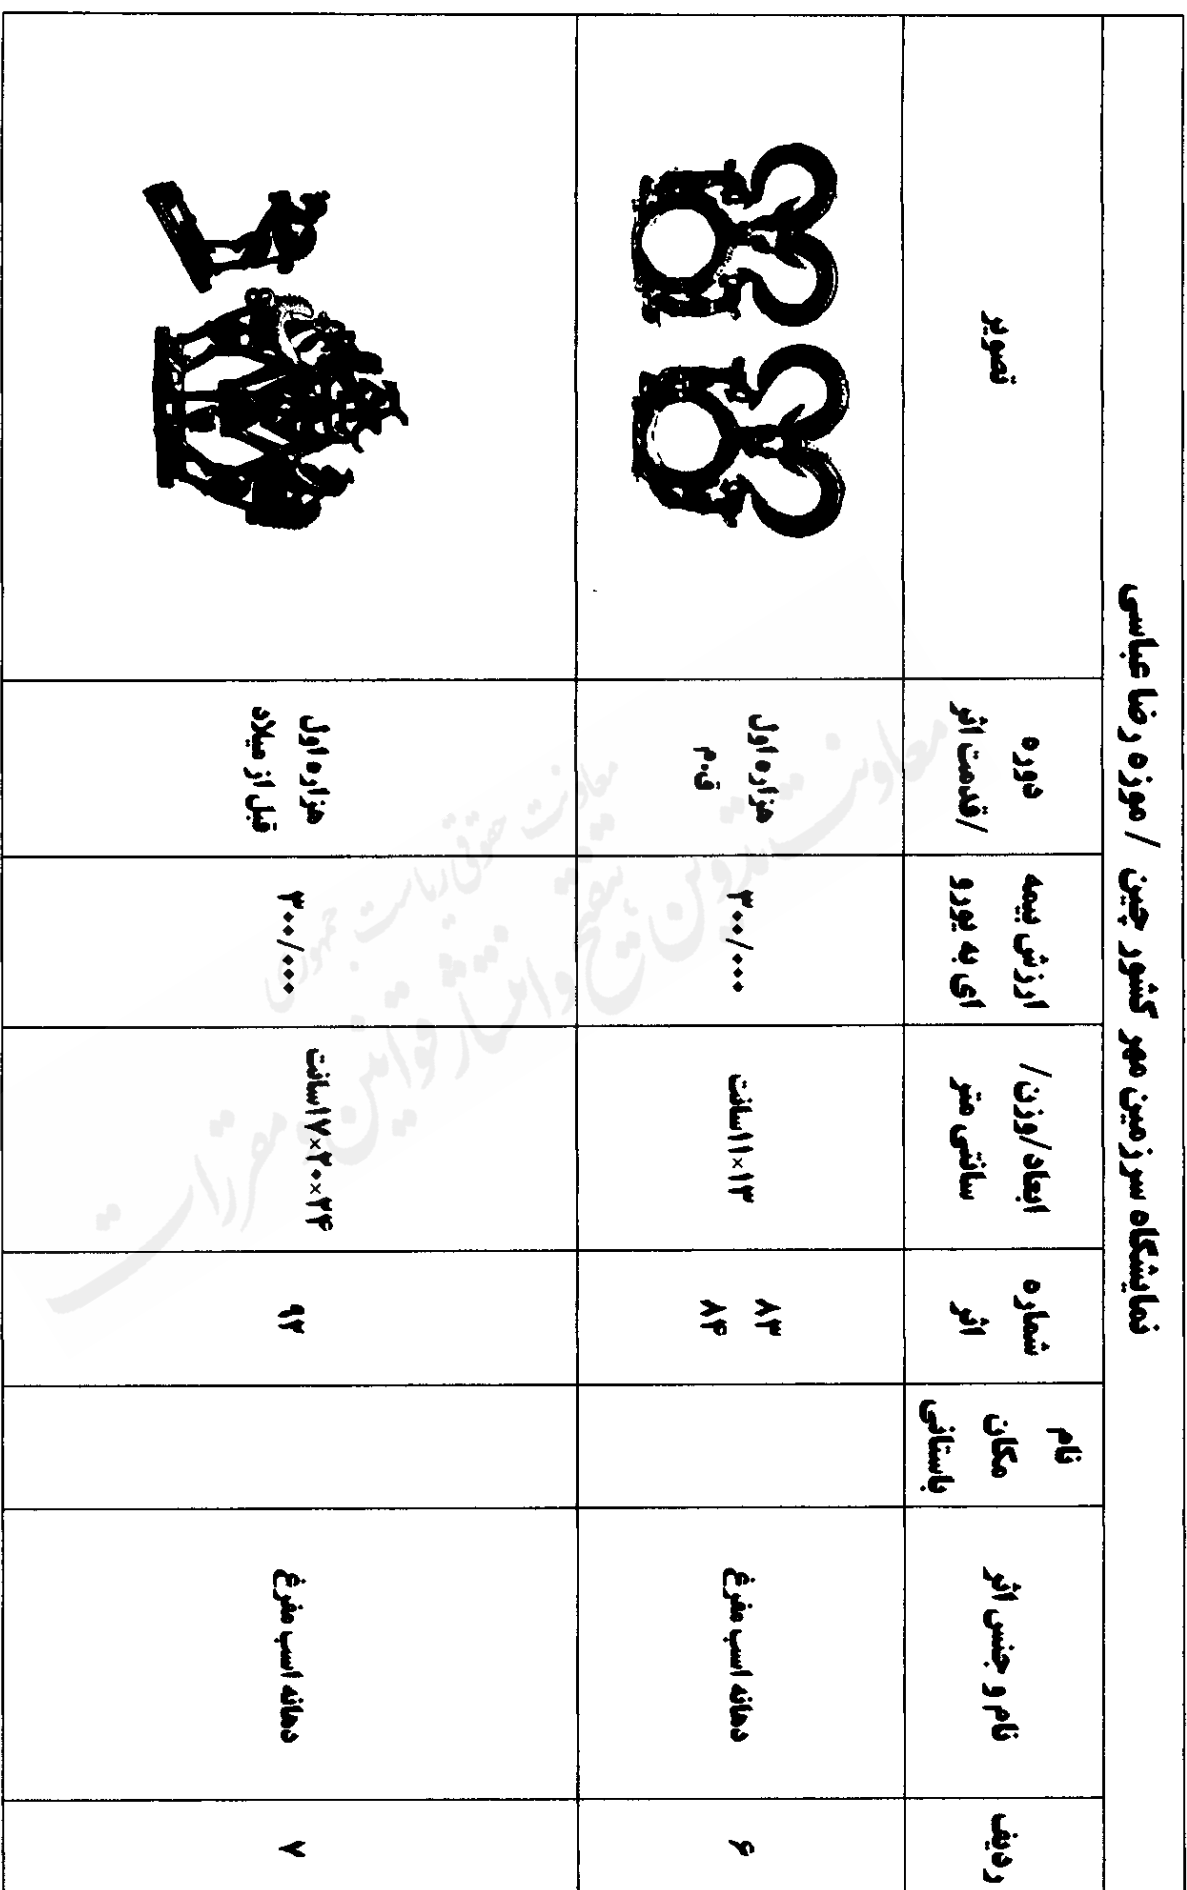 نمایشگاه سرزمین مهر کشور چین / موزه رضا عباسی
ردیف
نام و جنس اثر
نام
مکان
باستانی
شماره
اثر
ابعاد/وزن/
سانتی متر
ارزش بیمه
ای به یورو
دوره
/قدمت اثر
تصویر
۶
دهانه اسب مفرغ
۸۳
۸۴
۱۱×۱۳سانت
۳۰۰/۰۰۰
هزاره اول
ق.م
۷
دهانه اسب مفرغ
۹۲
۱۷×۲۰×۲۴سانت
۳۰۰/۰۰۰
هزاره اول
قبل از میلاد
معاونت تدوین، تنقیح و انتشار قوانین و مقررات
معاونت حقوقی ریاست جمهوری